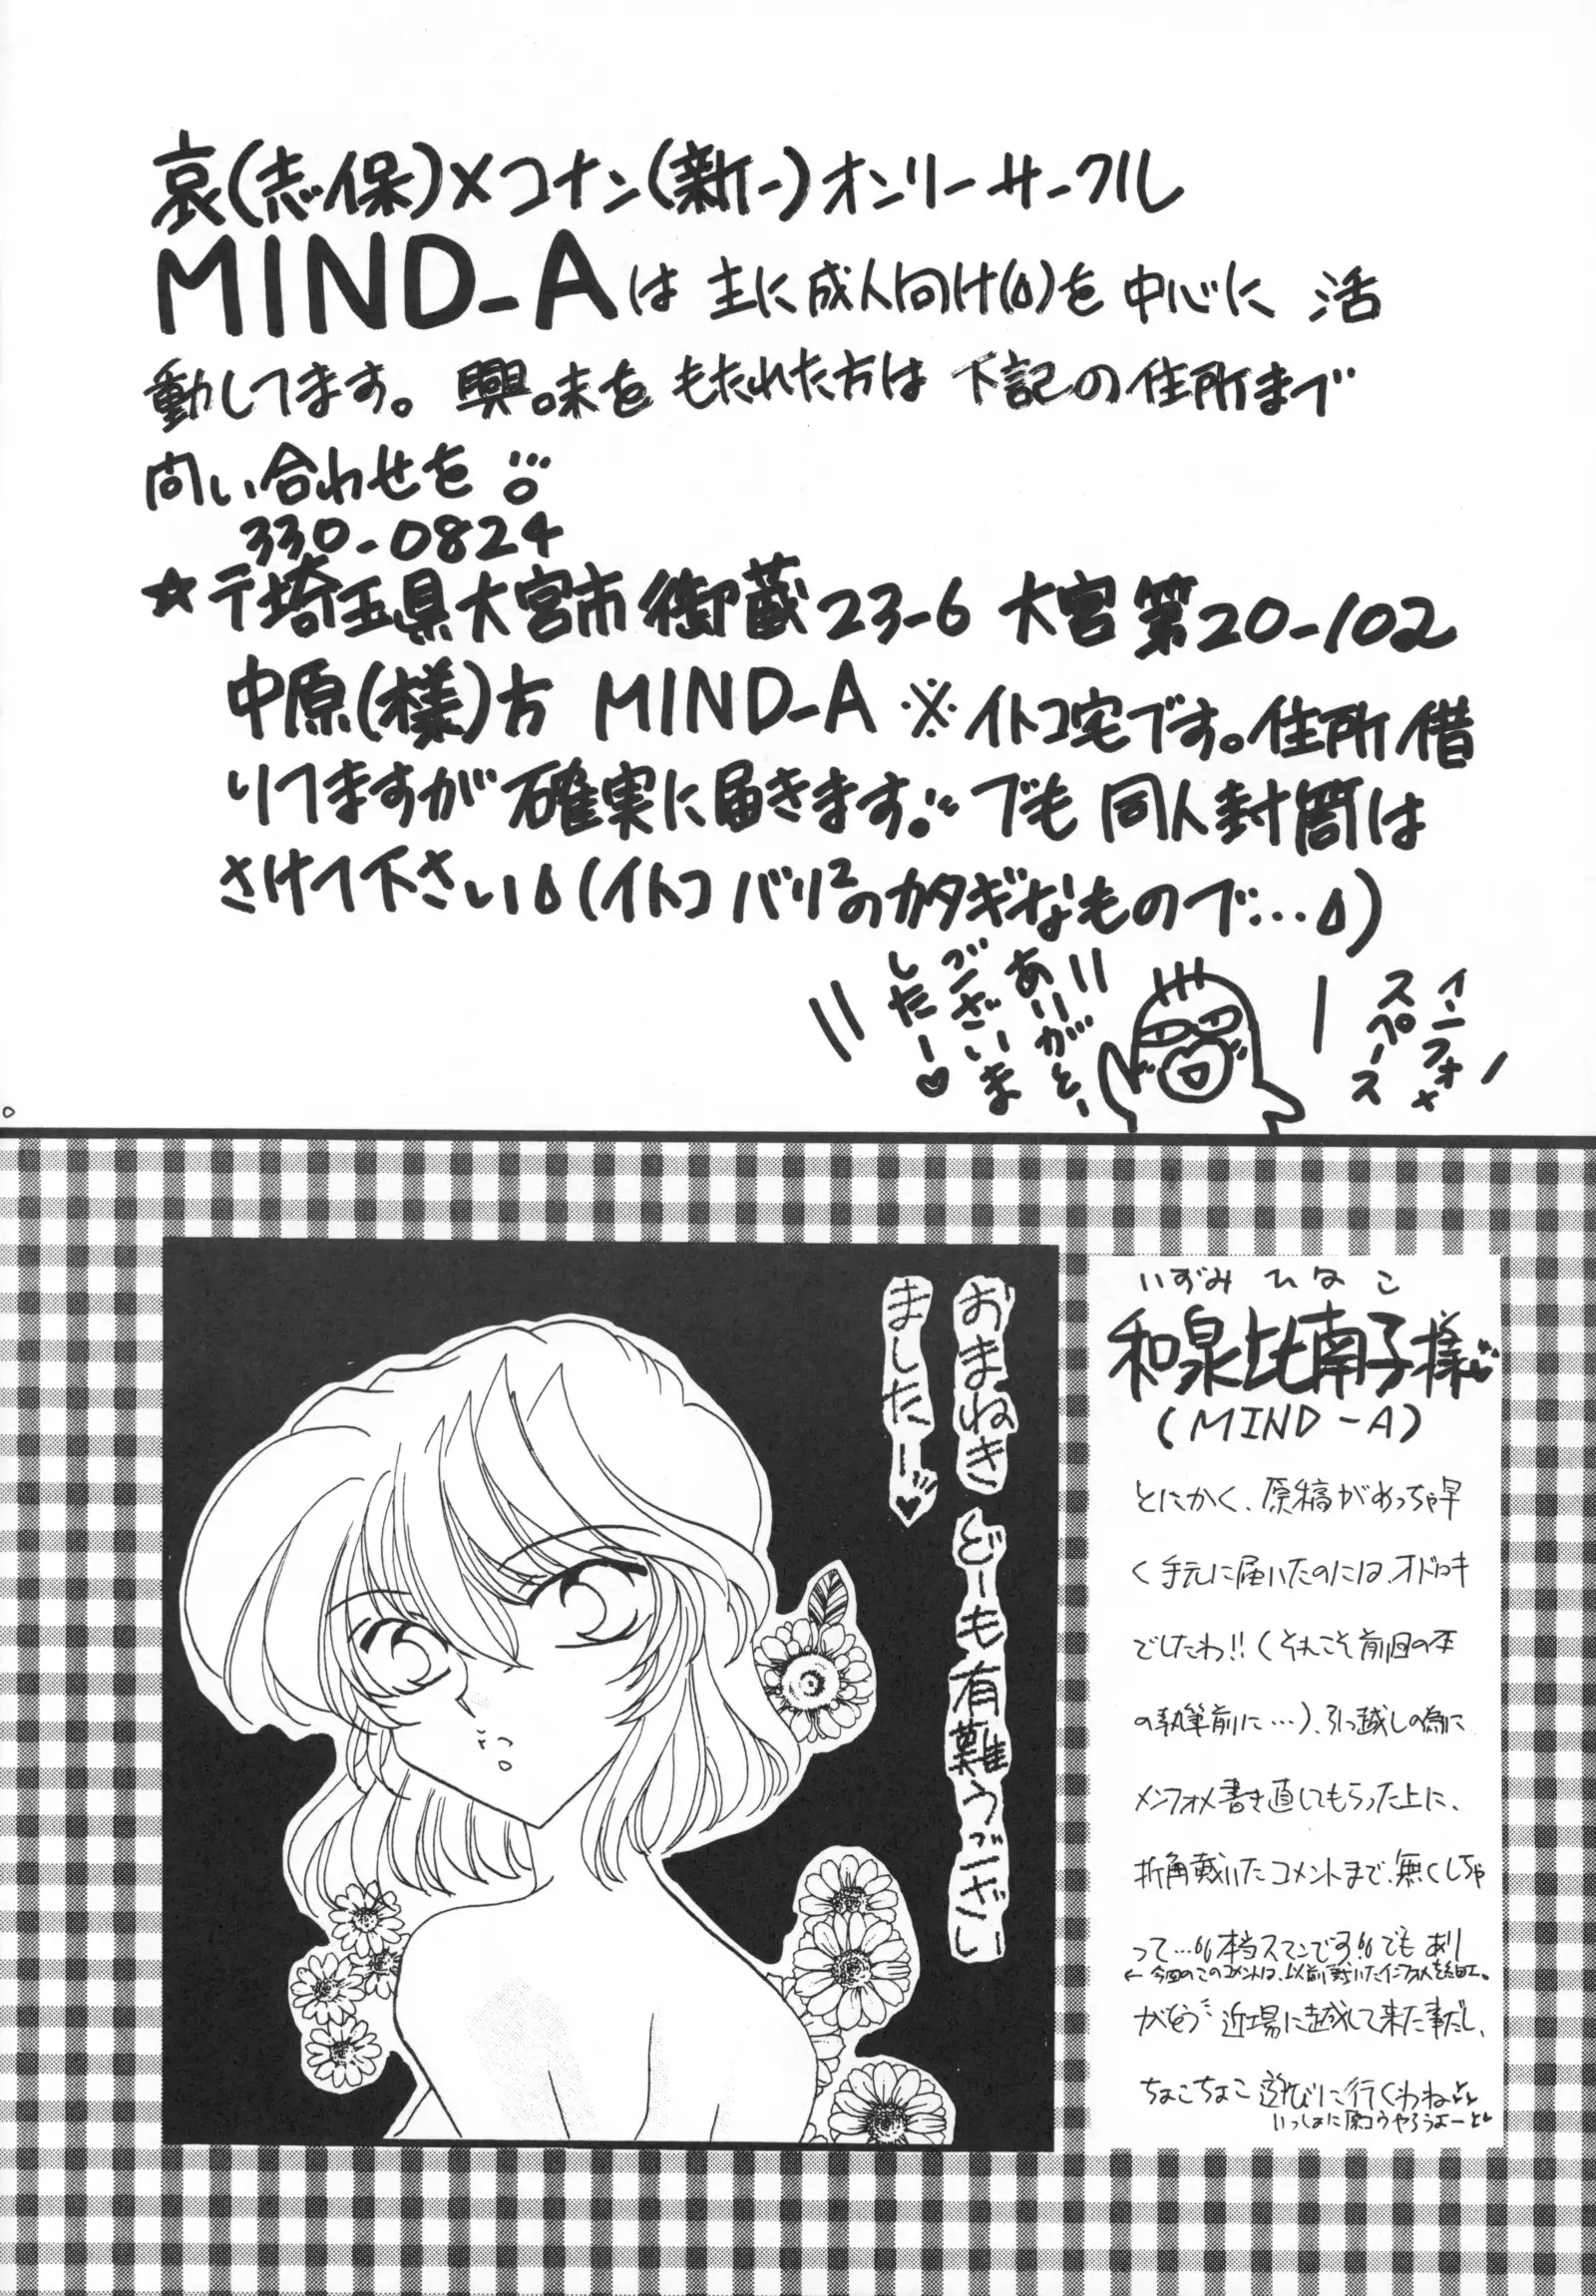 哀(志保)×コナン(新一)オンリーサークル
MIND-Aは 主に成人向け(💧)を 中心に 活
動してます。興味を もたれた方は 下記の住所まで
問い合わせを
330-0824
★〒埼玉県大宮市御蔵23-6 大宮第20-102
中原(様)方 MIND-A ※イトコ宅です。住所借
りてますが確実に届きます。でも 同人封筒は
さけて下さい💧(イトコ バリ²のカタギなもので…💧)
インフォメ
スペース
ありがとー
ございま
したー♥
おまねき どーも有難うござい
ましたー♥
いずみ ひなこ
和泉比南子様
(MIND-A)
とにかく、原稿がめっちゃ早
く手元に届いたのには、オドロキ
でしたわ!!(それこそ前回の本
の執筆前に…)、引っ越しの為に
インフォメ書き直してもらった上に、
折角戴いたコメントまで、無くしちゃ
って…本当スマンです!でも あり
←今回のこのコメントは、以前戴いたインフォメを
がとう 近場に越して来た事だし、
ちょこちょこ 遊びに行くわね
いっしょに原コウやろうよー